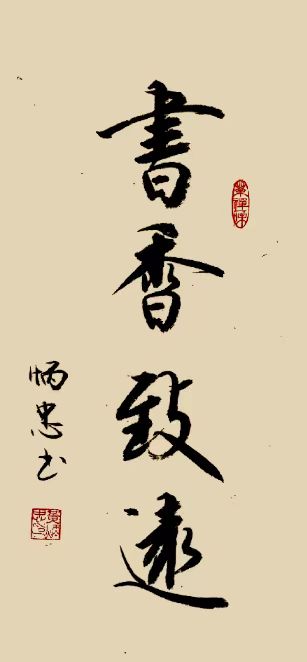 書香致遠
炳忠书